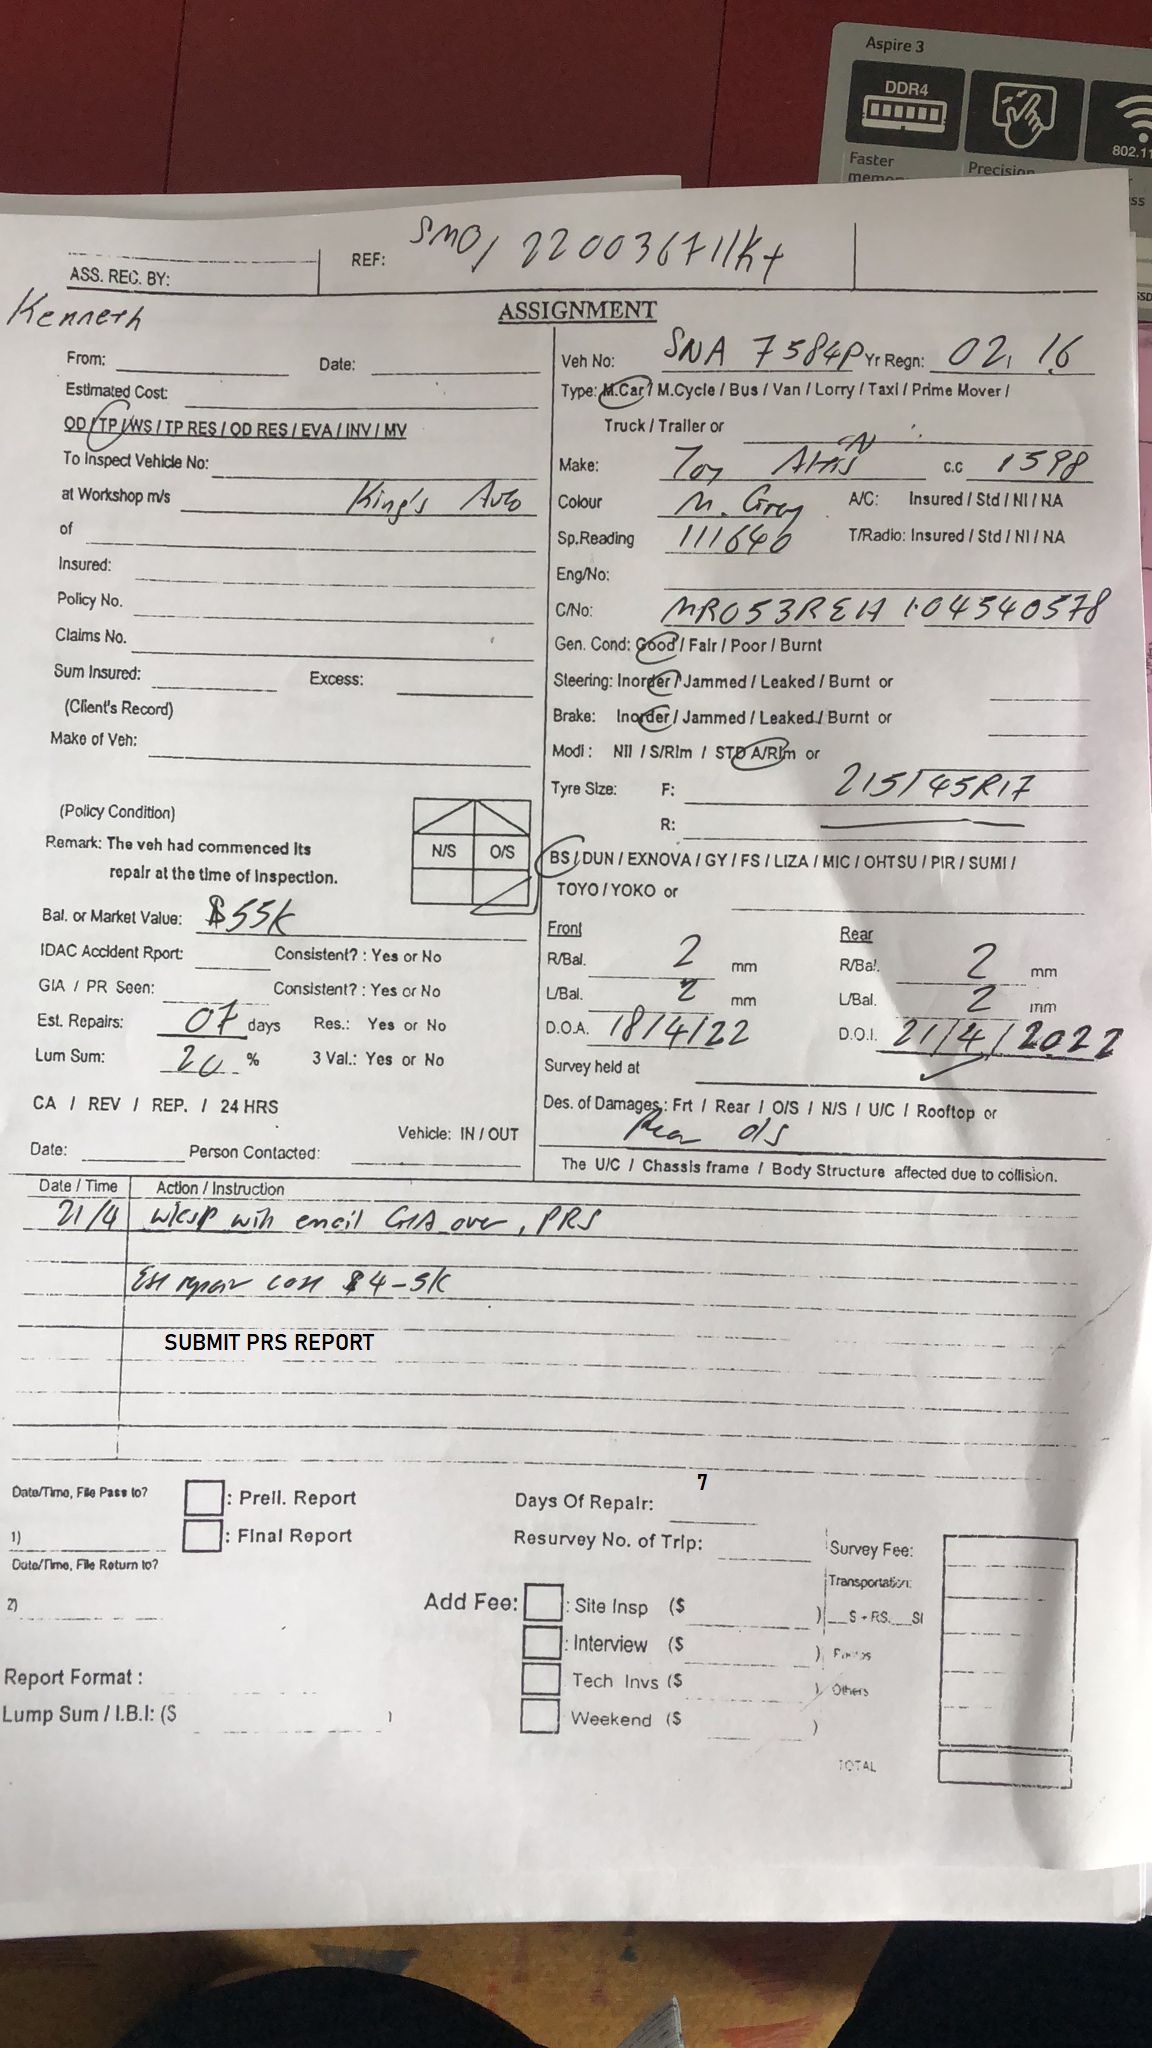 Aspire 3
DDR4
802.11
Faster
Precision
ASS. REC. BY:
REF: SMO/ 22003671/Kt
Kenneth
ASSIGNMENT
From: Date:
Estimated Cost:
OD / TP / WS / TP RES / OD RES / EVA / INV / MV
To Inspect Vehicle No:
at Workshop m/s King's Auto
of
Insured:
Policy No.
Claims No.
Sum Insured: Excess:
(Client's Record)
Make of Veh:
(Policy Condition)
Remark: The veh had commenced its
repair at the time of inspection.
N/S O/S
Bal. or Market Value: $55K
IDAC Accident Rport: Consistent? : Yes or No
GIA / PR Seen: Consistent? : Yes or No
Est. Repairs: 07 days Res.: Yes or No
Lum Sum: 20 % 3 Val.: Yes or No
CA / REV / REP. / 24 HRS
Vehicle: IN / OUT
Date: Person Contacted:
Veh No: SNA 7584P Yr Regn: 02, 16
Type: M.Car / M.Cycle / Bus / Van / Lorry / Taxi / Prime Mover /
Truck / Trailer or
Make: Toy Altis c.c 1598
Colour M. Grey A/C: Insured / Std / NI / NA
Sp.Reading 111640 T/Radio: Insured / Std / NI / NA
Eng/No:
C/No: MR053REH104540578
Gen. Cond: Good / Fair / Poor / Burnt
Steering: Inorder / Jammed / Leaked / Burnt or
Brake: Inorder / Jammed / Leaked / Burnt or
Modi : Nil / S/Rim / STD A/Rim or
Tyre Size: F: 215/45R17
R:
BS / DUN / EXNOVA / GY / FS / LIZA / MIC / OHTSU / PIR / SUMI /
TOYO / YOKO or
Front Rear
R/Bal. 2 mm R/Bal. 2 mm
L/Bal. 2 mm L/Bal. 2 mm
D.O.A. 18/4/22 D.O.I. 21/4/2022
Survey held at
Des. of Damages : Frt / Rear / O/S / N/S / U/C / Rooftop or
Rear o/s
The U/C / Chassis frame / Body Structure affected due to collision.
Date / Time Action / Instruction
21/4 wksp will email GIA over, PRS
Est repair cost $4-5K
SUBMIT PRS REPORT
Date/Time, File Pass to? : Prell. Report
7
Days Of Repair:
1) : Final Report Resurvey No. of Trip:
Date/Time, File Return to?
2)
Survey Fee:
Transportation:
Add Fee: : Site Insp ($ ) S + RS. SI
: Interview ($ )
Tech Invs ($ ) Others
Weekend ($ )
Report Format :
Lump Sum / I.B.I: ($ )
TOTAL